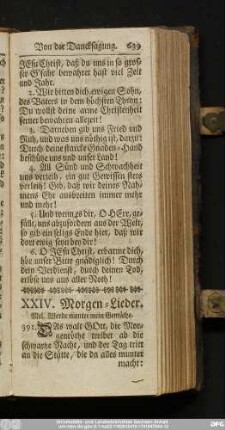 Von der Danckſagung. 639
JEſu Chriſt, daß du uns in ſo groſ-
ſer G'fahr bewahret haſt viel Zeit
und Jahr.
2. Wir bitten dich, ewigen Sohn,
des Vaters in dem höchſten Thron:
Du wollſt deine arme Chriſtenheit
ferner bewahren allezeit!
3. Darneben gib uns Fried und
Ruh, und was uns nöthig iſt, darzu!
Durch deine ſtarcke Gnaden-Hand
beſchütze uns und unſer Land!
4. All Sünd und Schwachheit
uns verzeih, ein gut Gewiſſen ſtets
verleih! Gib, daß wir deines Nah-
mens Ehr ausbreiten immer mehr
und mehr!
5. Und wenn es dir, O HErr, ge-
fällt, uns abzufordern aus der Welt,
ſo gib ein ſeligs Ende hier, daß wir
dort ewig ſeyn bey dir!
6. O JEſu Chriſt, erbarme dich,
hör unſer Bitte gnädiglich! Durch
dein Verdienſt, durch deinen Tod,
erlöſe uns aus aller Noth!
XXIV. Morgen-Lieder.
Mel. Werde munter mein Gemüthe.
392. DAs walt GOtt, die Mor-
genröthe treibet ab die
ſchwartze Nacht, und der Tag tritt
an die Stätte, die da alles munter
macht: